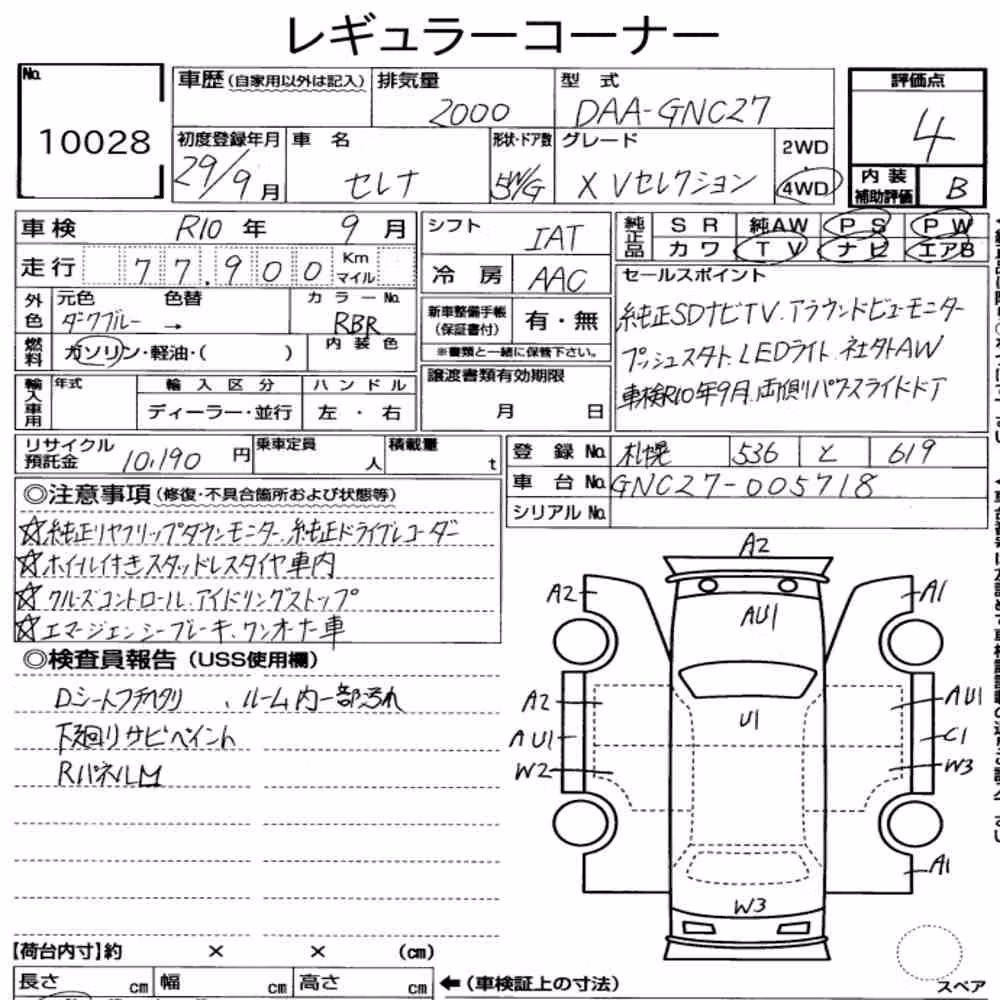 レギュラーコーナー
No.
10028
車歴(自家用以外は記入)
排気量
2000
型式
DAA-GNC27
評価点
4
内装補助評価
B
初度登録年月
29/9月
車名
セレナ
形状・ドア数
5W/G
グレード
X Vセレクション
2WD
・
4WD
車検 R10年 9月
走行 77,900 Km マイル
外色
元色
色替
ダークブルー →
カラーNo.
RBR
燃料
ガソリン・軽油・( )
内装色
シフト
IAT
冷房
AAC
新車整備手帳(保証書付)
有・無
※書類と一緒に保管下さい。
譲渡書類有効期限
月 日
純正品
SR 純AW PS PW
カワ TV ナビ エアB
セールスポイント
純正SDナビTV.アラウンドビューモニター
プッシュスタート.LEDライト.社外AW
車検R10年9月.両側パワースライドドア
輸入車用
年式
輸入区分
ディーラー・並行
ハンドル
左・右
リサイクル預託金
10,190円
乗車定員
人
積載量
t
登録No.
札幌 536 と 619
車台No.
GNC27-005718
シリアルNo.
◎注意事項(修復・不具合箇所および状態等)
☆純正リヤフリップダウンモニター.純正ドライブレコーダー
☆ホイール付きスタッドレスタイヤ車内
☆クルーズコントロール.アイドリングストップ
☆エマージェンシーブレーキ、ワンオーナー車
◎検査員報告(USS使用欄)
Dシートフチヘタリ 、ルーム内一部汚れ
下廻りサビペイント
RパネルM
A2
A2
A1
AU1
A2
AU1
U1
AU1
C1
W2
W3
A1
W3
【荷台内寸】約 × × (cm)
長さ cm 幅 cm 高さ cm
←(車検証上の寸法)
スペア